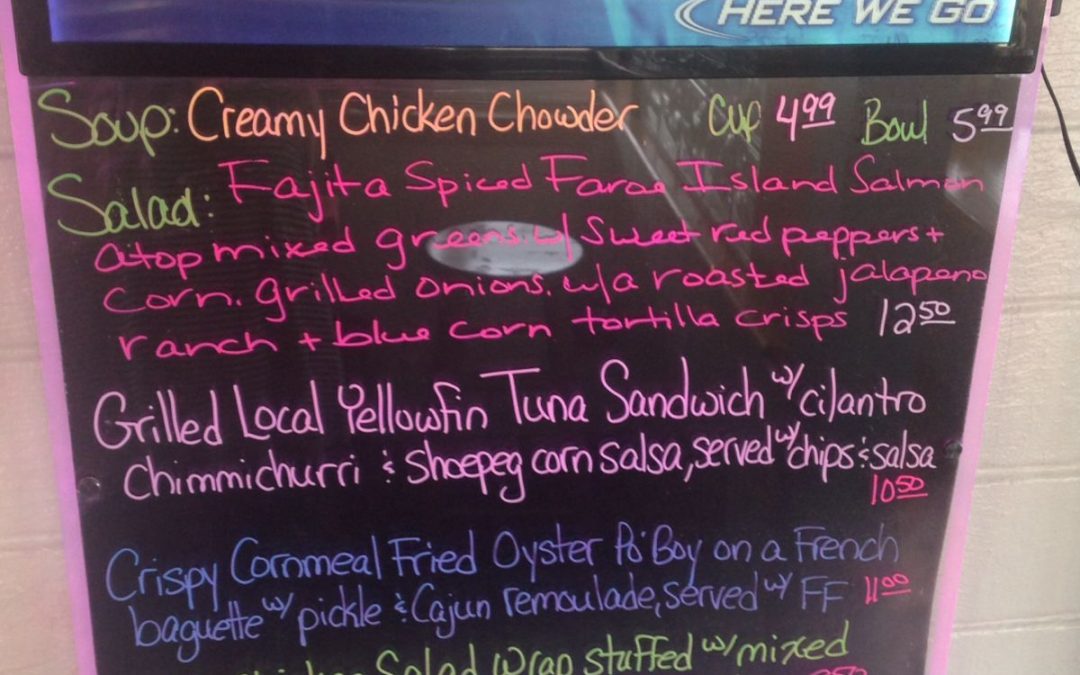 HERE WE GO
Soup: Creamy Chicken Chowder Cup 4.99 Bowl 5.99
Salad: Fajita Spiced Faroe Island Salmon
atop mixed greens. w/ sweet red peppers +
corn. grilled onions. w/a roasted jalapeno
ranch + blue corn tortilla crisps 12.50
Grilled Local Yellowfin Tuna Sandwich w/ cilantro
Chimmichurri & Shoepeg corn salsa, served w/ chips & salsa
10.50
Crispy Cornmeal Fried Oyster Po' Boy on a French
baguette w/ pickle & Cajun remoulade, served w/ FF 11.00
Salad Wrap stuffed w/ mixed